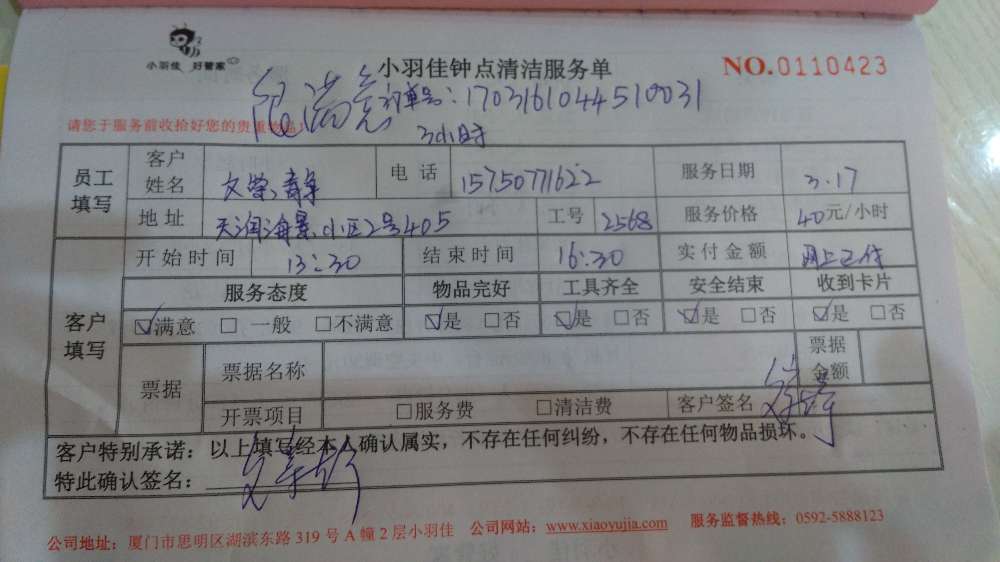 小羽佳 好管家
小羽佳钟点清洁服务单
NO.0110423
很满意 订单号:1703161044510031
请您于服务前收拾好您的贵重物品!
3小时
员工填写 客户姓名 电话 15750771622 服务日期 3.17
地址 天润海景小区2号405 工号 2568 服务价格 40元/小时
客户填写 开始时间 13:30 结束时间 16:30 实付金额 网上已付
服务态度 物品完好 工具齐全 安全结束 收到卡片
☑满意 □一般 □不满意 ☑是 □否 ☑是 □否 ☑是 □否 ☑是 □否
票据 票据名称 票据金额
开票项目 □服务费 □清洁费 客户签名
客户特别承诺:以上填写经本人确认属实,不存在任何纠纷,不存在任何物品损坏。
特此确认签名:
公司地址:厦门市思明区湖滨东路 319 号 A 幢 2 层小羽佳 公司网站:www.xiaoyujia.com 服务监督热线:0592-5888123